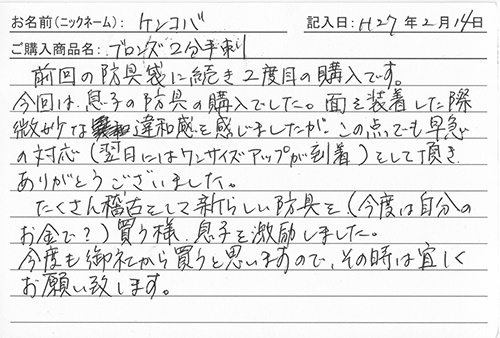 お名前(ニックネーム): ケンコバ 記入日: H27年2月14日
ご購入商品名: ブロンズ2分手刺
前回の防具袋に続き2度目の購入です。
今回は、息子の防具の購入でした。面を装着した際
微妙な違和感を感じましたが、この点でも早急
の対応(翌日にはワンサイズアップが到着)をして頂き
ありがとうございました。
たくさん稽古をして新らしい防具を(今度は自分の
お金で?)買う様、息子を激励しました。
今度も御社から買うと思いますので、その時は宜しく
お願い致します。